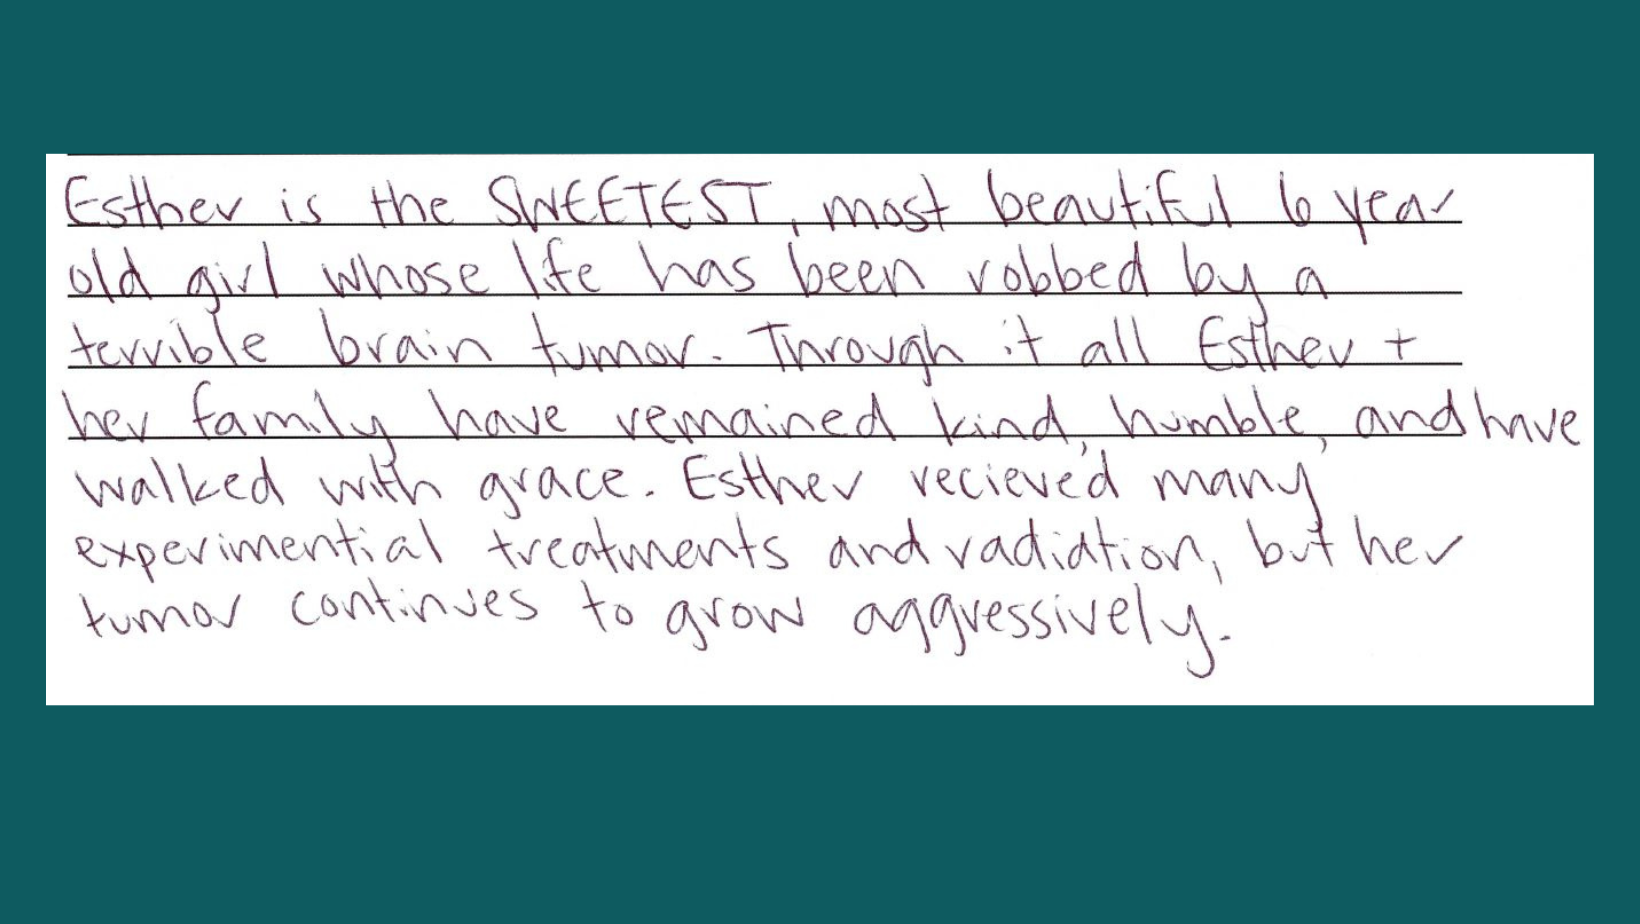 Esther is the SWEETEST, most beautiful 6 year
old girl whose life has been robbed by a
terrible brain tumor. Through it all Esther +
her family have remained kind, humble, and have
walked with grace. Esther recieved many
experimential treatments and radiation, but her
tumor continues to grow aggressively.